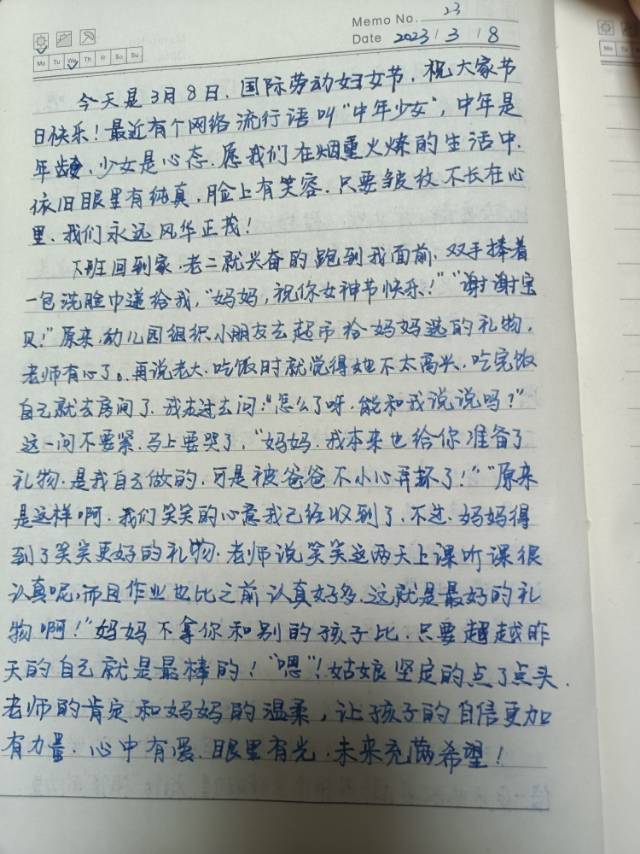 Memo No. 23
Mo Tu We Th Fr Sa Su
Date 2023 / 3 / 8
今天是3月8日,国际劳动妇女节,祝大家节
日快乐!最近有个网络流行语叫"中年少女",中年是
年龄,少女是心态.愿我们在烟熏火燎的生活中.
依旧眼里有纯真,脸上有笑容.只要皱纹不长在心
里.我们永远风华正茂!
下班回到家.老二就兴奋的跑到我面前.双手捧着
一包洗脸巾递给我,"妈妈,祝你女神节快乐!""谢谢宝
贝!"原来,幼儿园组织小朋友去超市给妈妈选的礼物,
老师有心了。再说老大.吃饭时就觉得她不太高兴.吃完饭
自己就去房间了.我走进去问:"怎么了呀.能和我说说吗?"
这一问不要紧.马上要哭了,"妈妈.我本来也给你准备了
礼物.是我自己做的.可是被爸爸不小心弄坏了!""原来
是这样啊.我们笑笑的心意我已经收到了.不过.妈妈得
到了笑笑更好的礼物.老师说笑笑这两天上课听课很
认真呢,而且作业也比之前认真好多.这就是最好的礼
物啊!"妈妈不拿你和别的孩子比.只要超越昨
天的自己就是最棒的!"嗯"!姑娘坚定的点了点头.
老师的肯定和妈妈的温柔,让孩子的自信更加
有力量.心中有爱.眼里有光.未来充满希望!